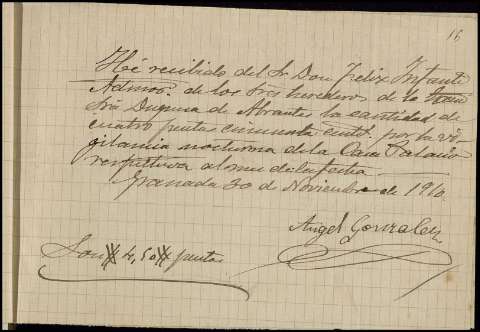 16
He recibido del Sr Don Felix Infante
Admor. de los Sres herederos de la
Sra Duquesa de Abrantes la cantidad de
cuatro pesetas cincuenta centt. por la vi-
gilancia nocturna de la Casa Palacio
respectiva al mes de la fecha.
Granada 30 de Noviembre de 1910.
Angel Gonzalez
Son # 4,50 # pesetas